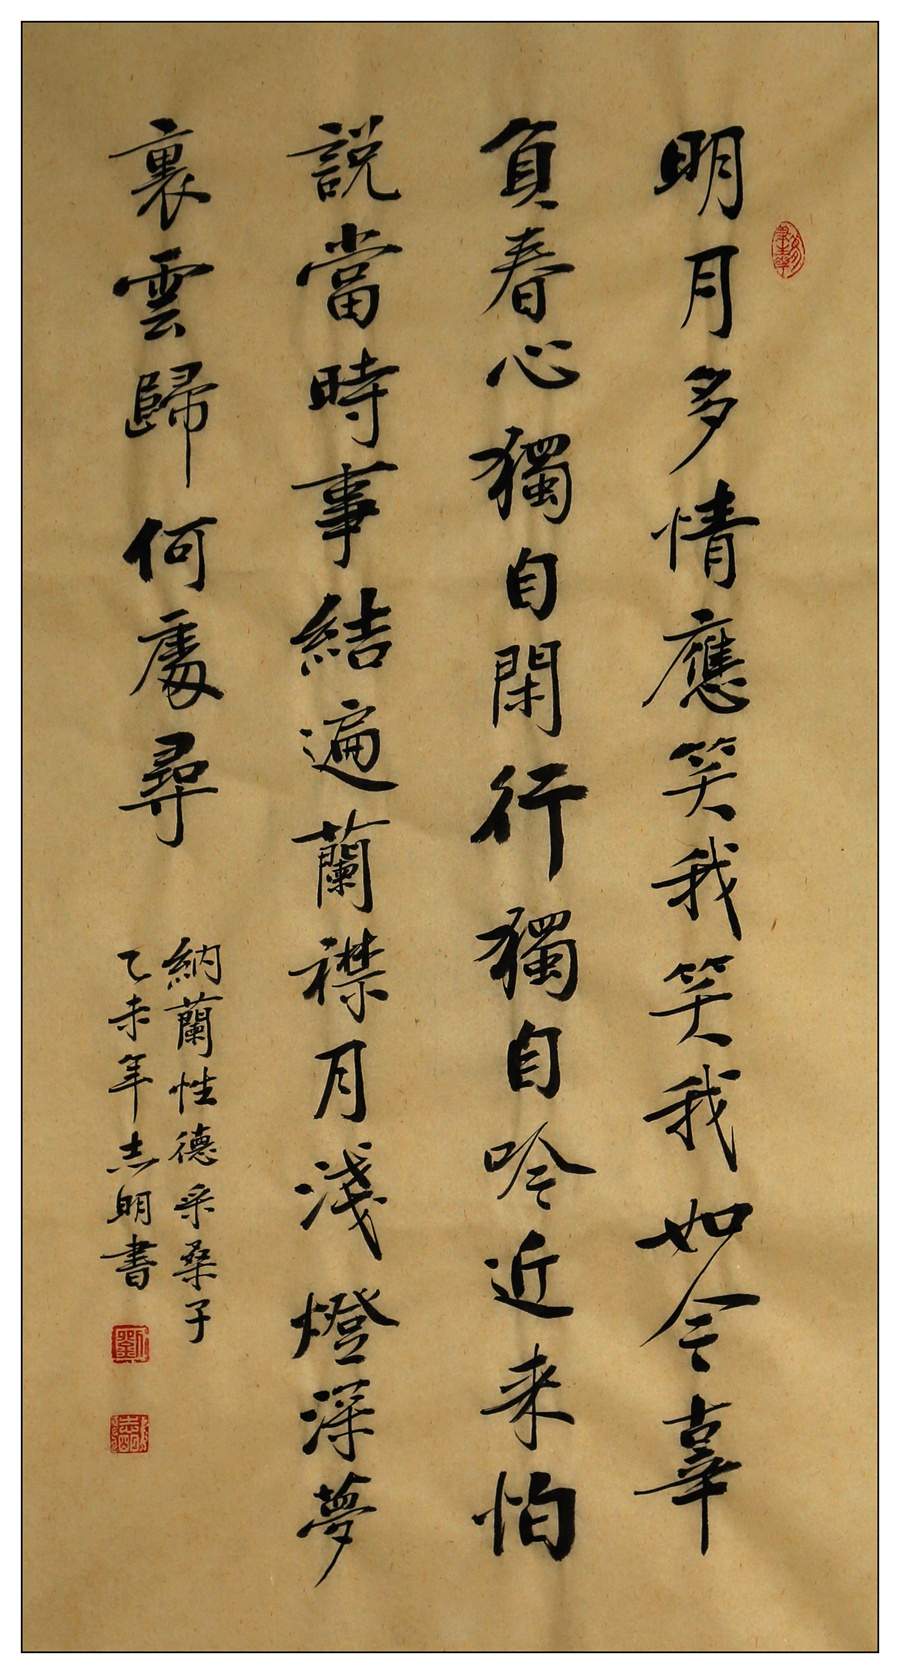 明月多情應笑我笑我如今辜
負春心獨自閑行獨自吟近来怕
說當時事結遍蘭襟月淺燈深夢
裏雲歸何處尋
納蘭性德采桑子
乙未年志明書
劉